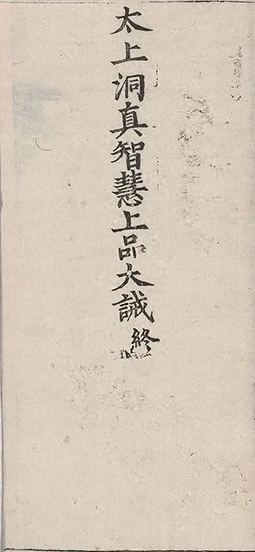 太上洞真智慧上品大誡終